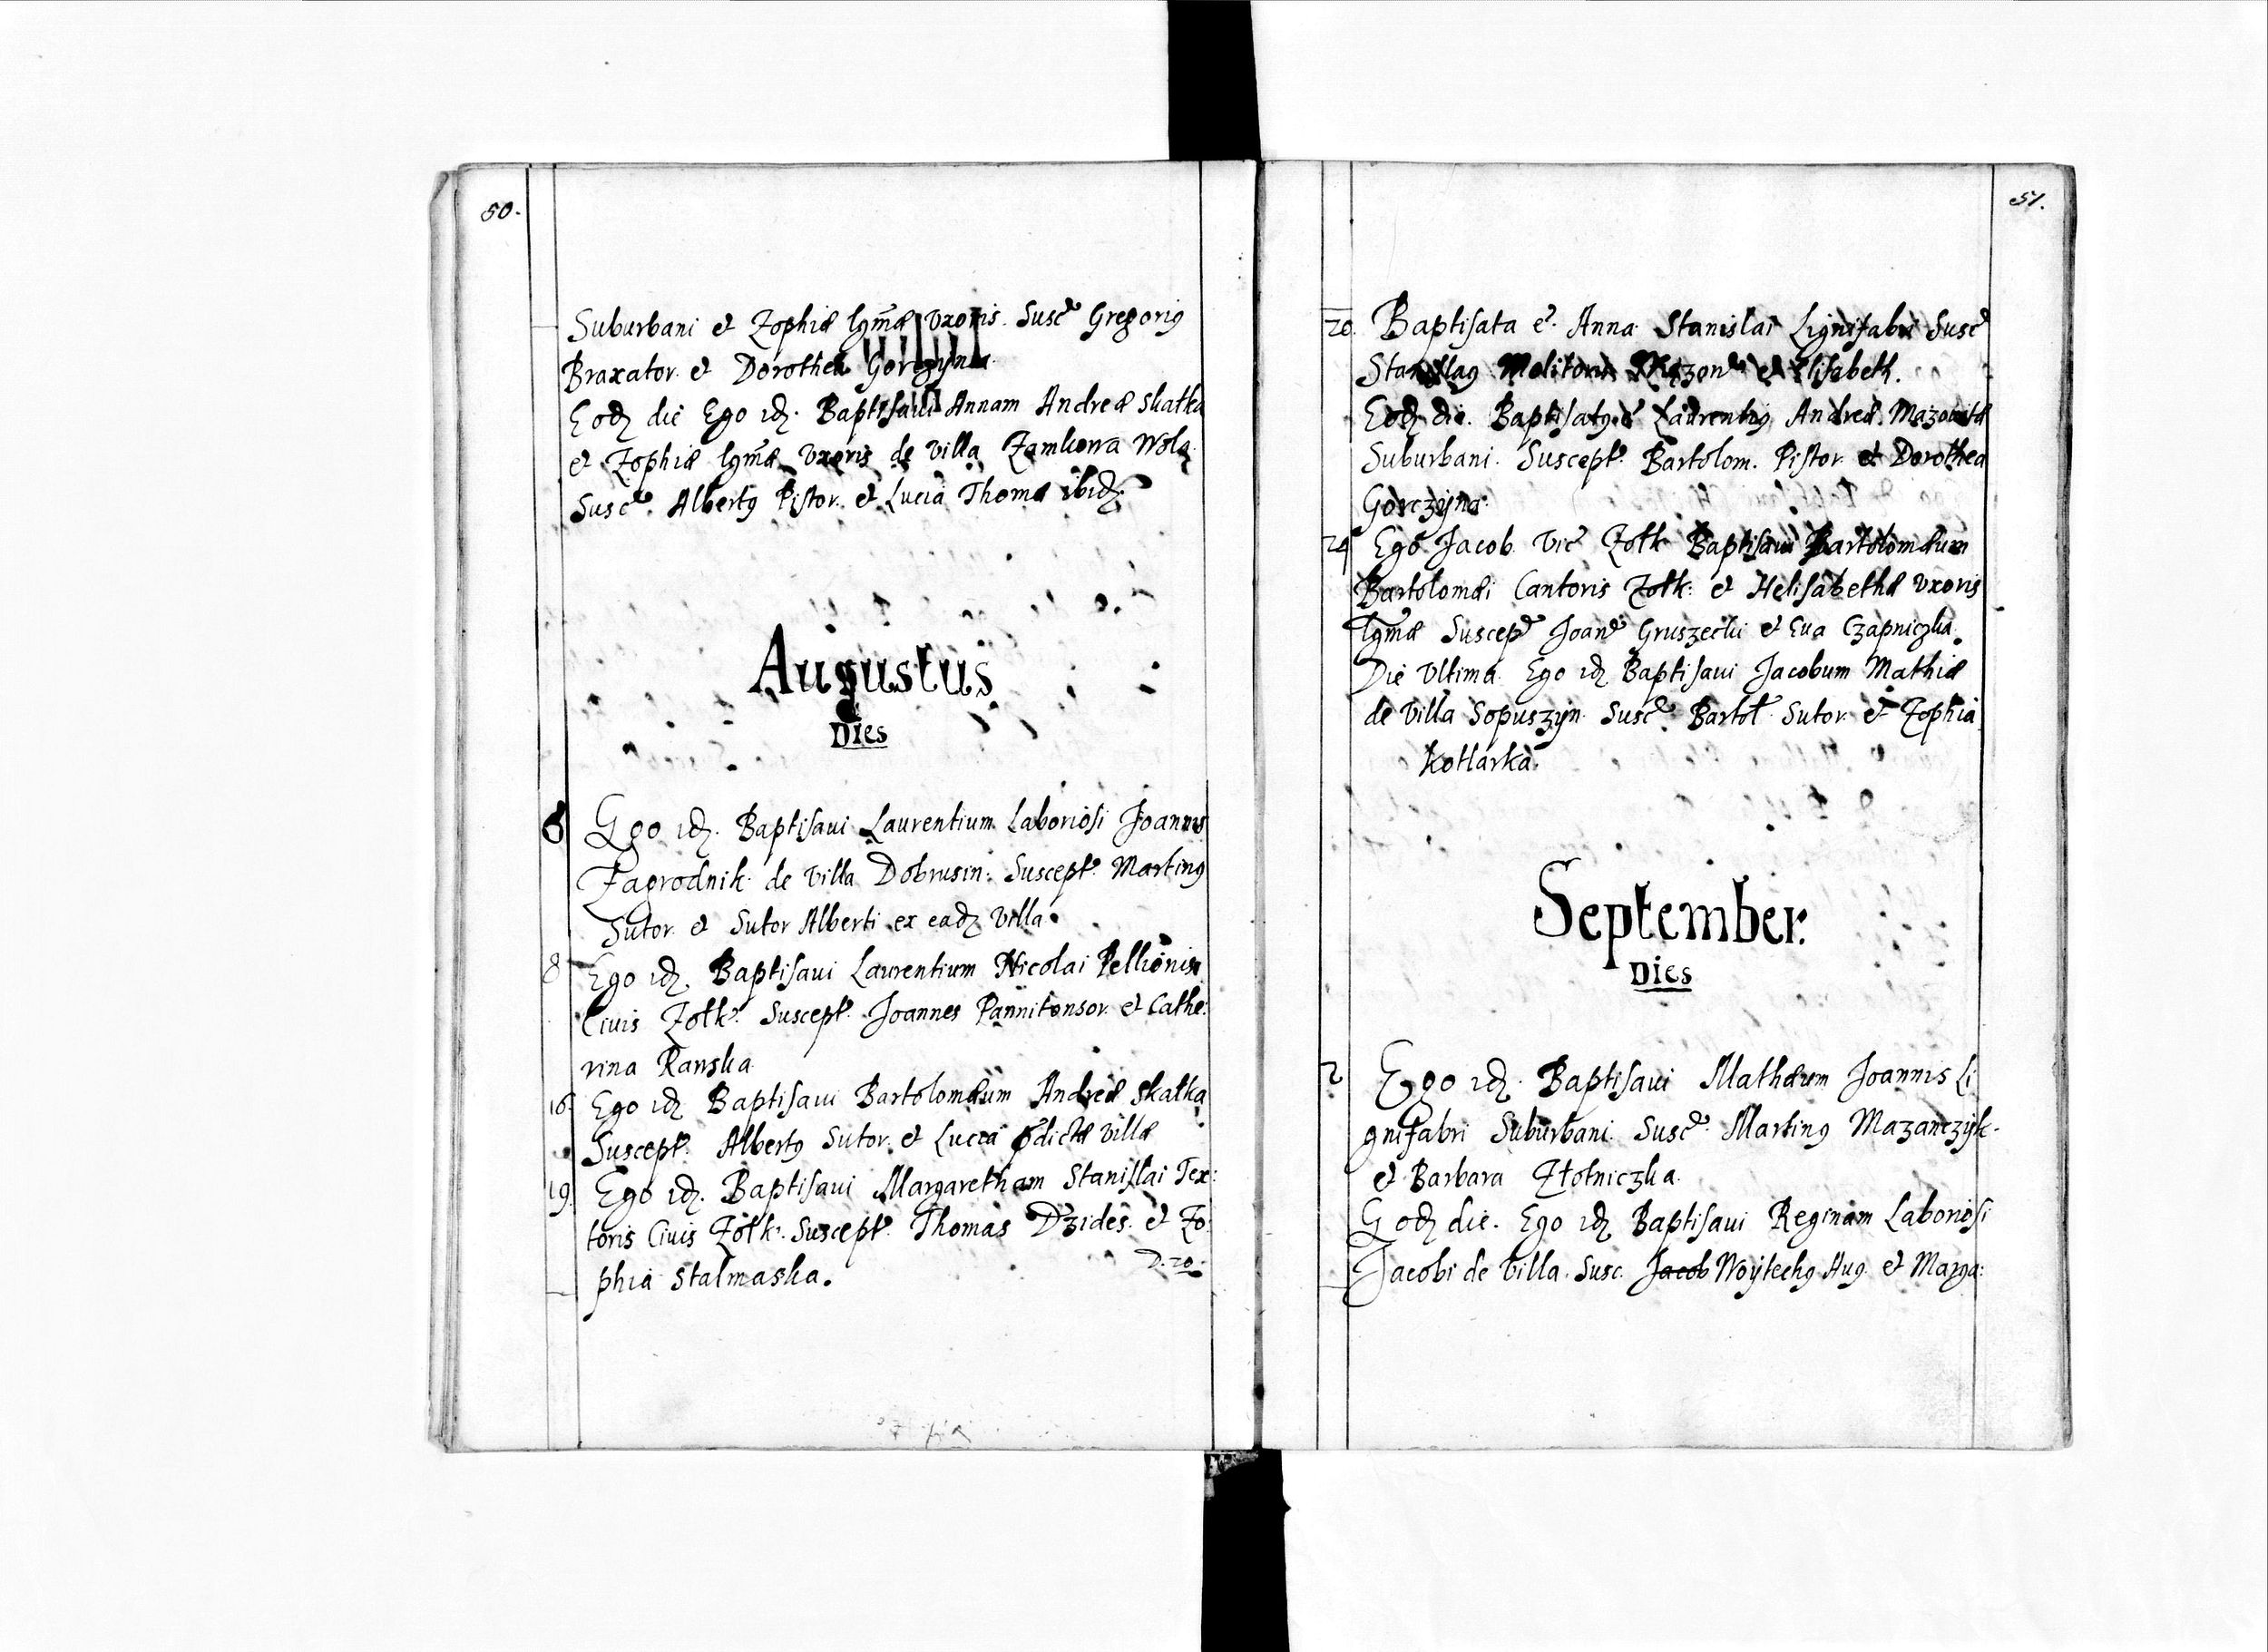 50.
Suburbani et Zophiæ lgmæ vxoris. Susc Gregorig
Braxator. et Dorothea Gorczyna.
Eodz die Ego idz. Baptisaui Annam Andreæ Skałka
et Zophiæ lgmæ vxoris de villa Zamkowa Wola.
Susc. Albertg Pistor. et Lucia Thomæ ibidz.
Augustus
Dies
6 Ego idz. Baptisaui Laurentium Laboriosi Joannis
Zagrodnik. de villa Dobrusin: Suscept. Marting
Sutor. et Sutor Alberti ex eadz villa.
8 Ego idz. Baptisaui Laurentium Nicolai Pellionis
Ciuis Zołk. Suscept. Joannes Pannitonsor. et Cathe:
rina Ranska.
16. Ego idz Baptisaui Bartolomæum Andreæ Skałka
Suscept. Albertg Sutor. et Lucia pdictæ villæ
19. Ego idz. Baptisaui Margaretham Stanislai Tex:
toris Ciuis Zołk. Suscept. Thomas Dzides. et Zo:
phia Stalmaska.
D. 20.
51.
20. Baptisata e. Anna Stanislai Lignifabri Susc
Stanislag Molitoris et Elisabeth.
Eodz die. Baptisatg e Laurentig Andreæ Mazowitæ
Suburbani. Suscept. Bartolom. Pistor. et Dorothea
Gorczyna.
24 Ego Jacob. Vic Zołk Baptisaui Bartolomæum
Bartolomæi Cantoris Zołk: et Helisabethæ vxoris
lgmæ Suscep Joan Gruszecki et Eua Czapniczka.
Die Vltima. Ego idz Baptisaui Jacobum Mathiæ
de villa Sopuszyn. Susc. Bartoł. Sutor. et Zophia
Kotlarka.
September.
Dies
2 Ego idz. Baptisaui Mathæum Joannis Li
gnifabri Suburbani. Susc. Marting Mazanczyk.
et Barbara Złotniczka.
Eodz die. Ego idz Baptisaui Reginam Laboriosi
Jacobi de villa. Susc. Jacob Woytechg Aug. et Marga: